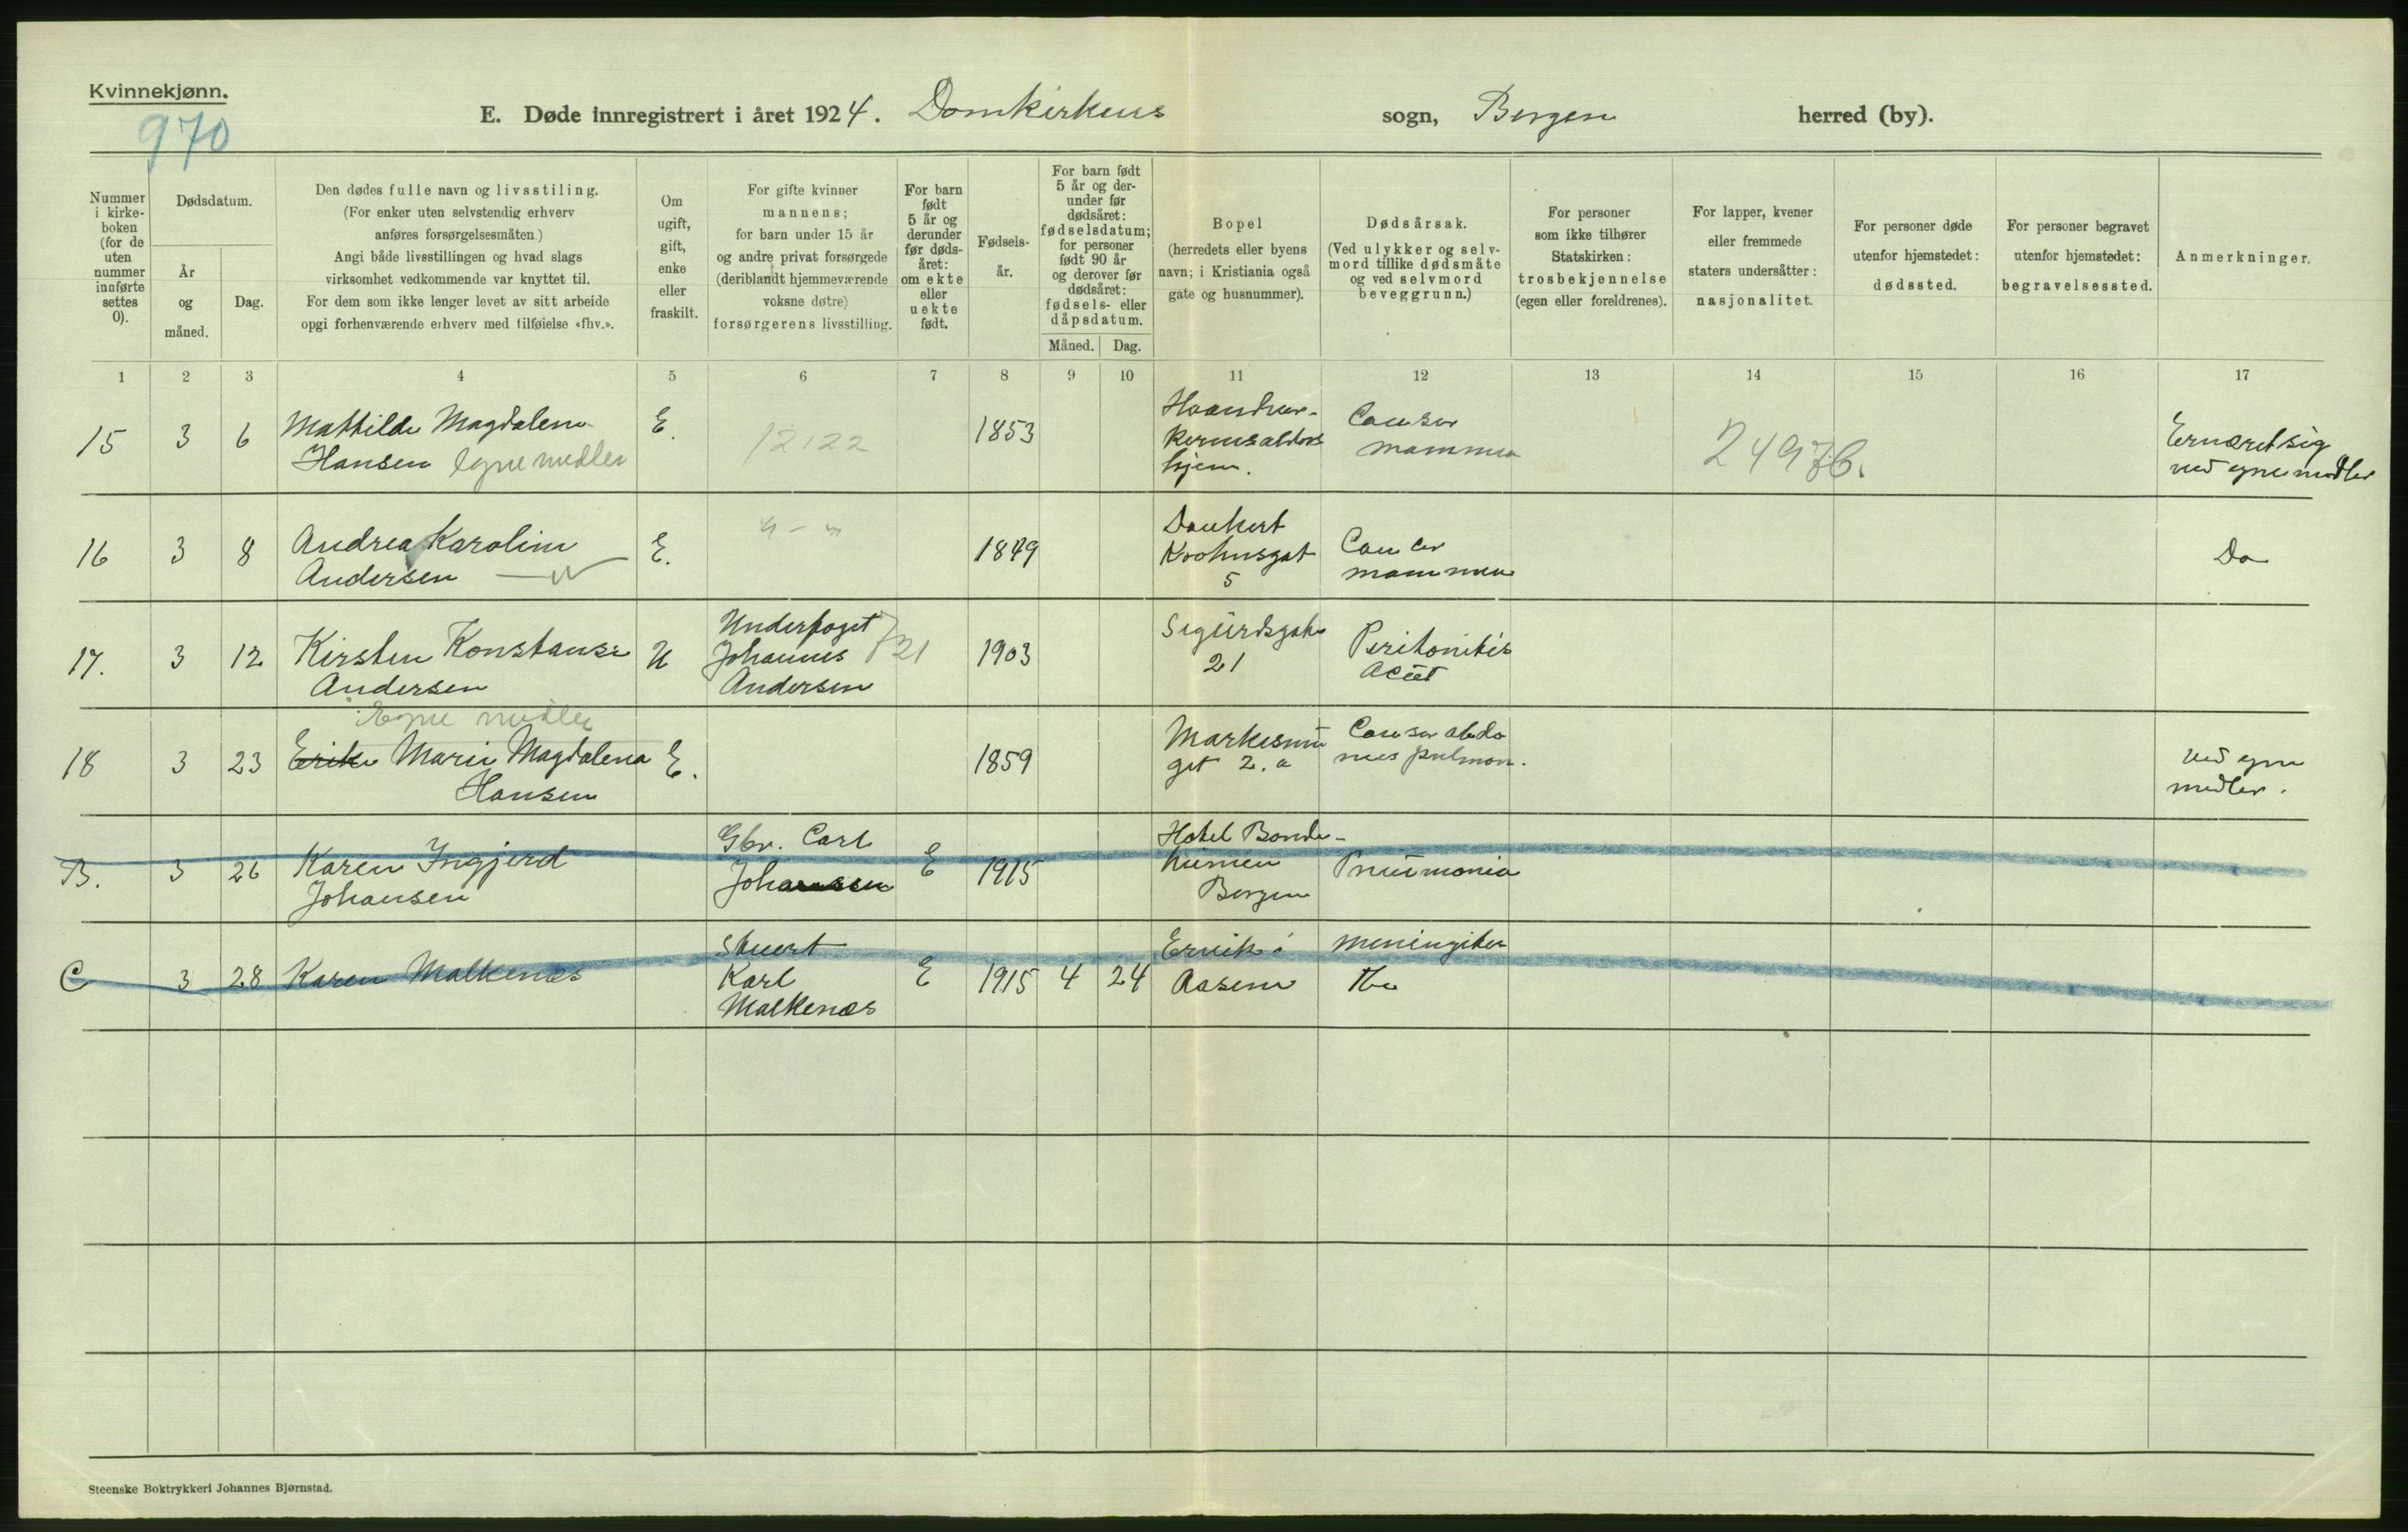 Kvinnekjønn.
970
E. Døde innregistrert i året 1924. Domkirkens sogn, Bergen herred (by).
Nummer i kirke-boken (for de uten nummer innførte settes 0).
Dødsdatum.
År og måned.
Dag.
Den dødes fulle navn og livsstiling.
(For enker uten selvstendig erhverv
anføres forsørgelsesmåten.)
Angi både livsstillingen og hvad slags
virksomhet vedkommende var knyttet til.
For dem som ikke lenger levet av sitt arbeide
opgi forhenværende erhverv med tilføielse «fhv.».
Om ugift, gift, enke eller fraskilt.
For gifte kvinner
mannens;
for barn under 15 år
og andre privat forsørgede
(deriblandt hjemmeværende
voksne døtre)
forsørgerens livsstilling.
For barn født 5 år og derunder før døds-året: om ekte eller uekte født.
Fødsels-år.
For barn født 5 år og der-under før dødsåret: fødselsdatum; for personer født 90 år og derover før dødsåret: fødsels- eller dåpsdatum.
Måned. Dag.
Bopel
(herredets eller byens
navn; i Kristiania også
gate og husnummer).
Dødsårsak.
(Ved ulykker og selv-
mord tillike dødsmåte
og ved selvmord
beveggrunn.)
For personer
som ikke tilhører
Statskirken:
trosbekjennelse
(egen eller foreldrenes).
For lapper, kvener
eller fremmede
staters undersåtter:
nasjonalitet.
For personer døde
utenfor hjemstedet:
dødssted.
For personer begravet
utenfor hjemstedet:
begravelsessted.
Anmerkninger.
1 2 3 4 5 6 7 8 9 10 11 12 13 14 15 16 17
15 3 6 Mathilde Magdalene E. 12122 1853 Haandver- Cancer 24976. Ernæret sig
Hansen Egne midler kernesalders mammae ved egne midler
hjem.
16 3 8 Andrea Karoline E. 1849 Dankert Cancer Do
Andersen Krohnsgat mammae
5
17. 3 12 Kirsten Konstanse U Underfoget 721 1903 Sigurdsgate Peritonitis
Andersen Johannes 21 acut
Andersen
Egne midler
18 3 23 Erike Marie Magdalena E. 1859 Markesmu Cancer abdo
Hansen get 2. a mes pulmon. Ved egne
midler.
B. 3 26 Karen Ingjerd Gbr. Carl E 1915 Hotel Bonde-
Johansen Johansen heimen Pneumonia
Bergen
C 3 28 Karen Malkenæs Stuert E 1915 4 24 Ervik i meningiter
Karl Aasene Tbc
Malkenæs
Steenske Boktrykkeri Johannes Bjørnstad.